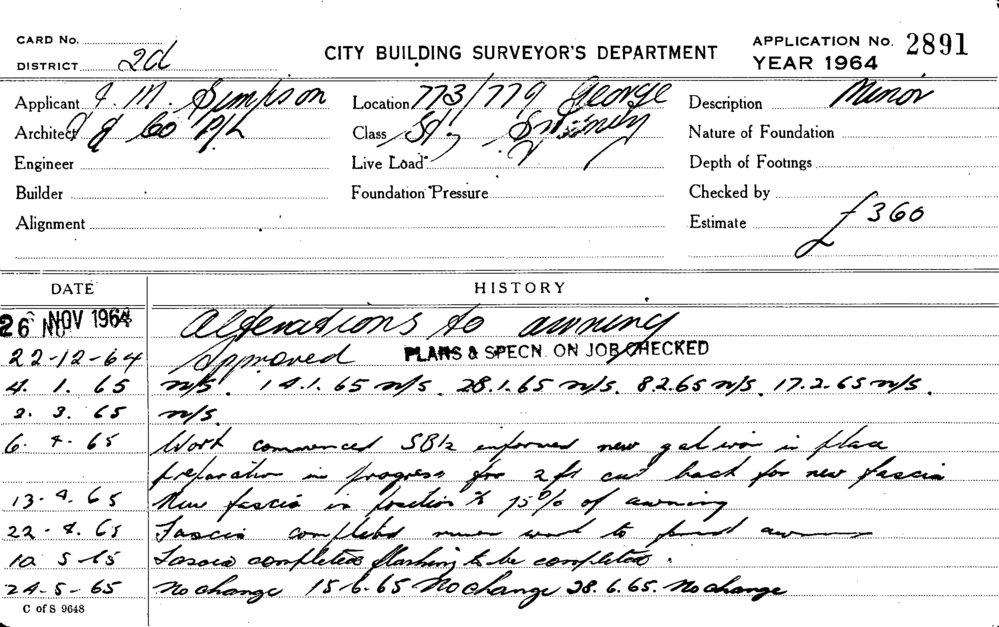 CARD No.
DISTRICT 2d
CITY BUILDING SURVEYOR'S DEPARTMENT
APPLICATION No. 2891
YEAR 1964
Applicant J. M. Simpson
Location 773/779 George
Description Minor
Architect & Co P/L
Class St, Sydney
Nature of Foundation
Engineer
Live Load
Depth of Footings
Builder
Foundation Pressure
Checked by
Alignment
Estimate £360
DATE HISTORY
26 NOV 1964 Alterations to awning
22-12-64 Approved PLANS & SPECN. ON JOB CHECKED
4. 1. 65 n/s. 14.1.65 n/s. 28.1.65 n/s. 8.2.65 n/s. 17.2.65 n/s.
2. 3. 65 n/s.
6. 4. 65 Work commenced informed new gal iron in place
preparation in progress for 2 ft cut back for new fascia
13-4.65 New fascia in position to 75% of awning
22-4.65 Fascia completed work to
10 5-65 Fascia completed flashing to be completed.
24-5-65 No change 15-6.65 No change 28.6.65. No change
C of S 9648